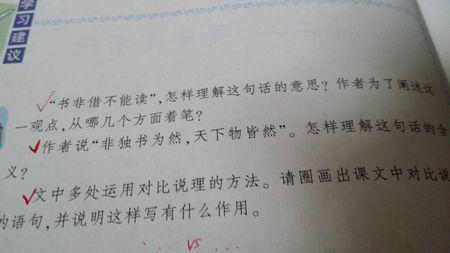 学习建议
“书非借不能读”,怎样理解这句话的意思?作者为了阐述这
一观点,从哪几个方面着笔?
作者说“非独书为然,天下物皆然”。怎样理解这句话的含
义?
文中多处运用对比说理的方法。请圈画出课文中对比说
的语句,并说明这样写有什么作用。
... vs ...